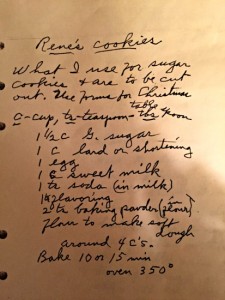 Rene's cookies
What I use for sugar
cookies & are to be cut
out. Use forms for Christmas
c-cup, ts-teaspoon- tbs table spoon
1 1/2 c G. sugar
1 c lard or shortening
1 egg
1 c sweet milk
1 ts soda (in milk)
flavoring
2 ts baking powder (in flour)
flour to make soft
dough
around 4 c's.
Bake 10 or 15 min
oven 350°